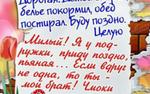 белье покормил, обед
постирал. Буду поздно.
Целую
Милый! Я у под-
ружки, приду поздно,
пьяная... Если вдруг
не одна, то ты -
мой брат! Чмоки